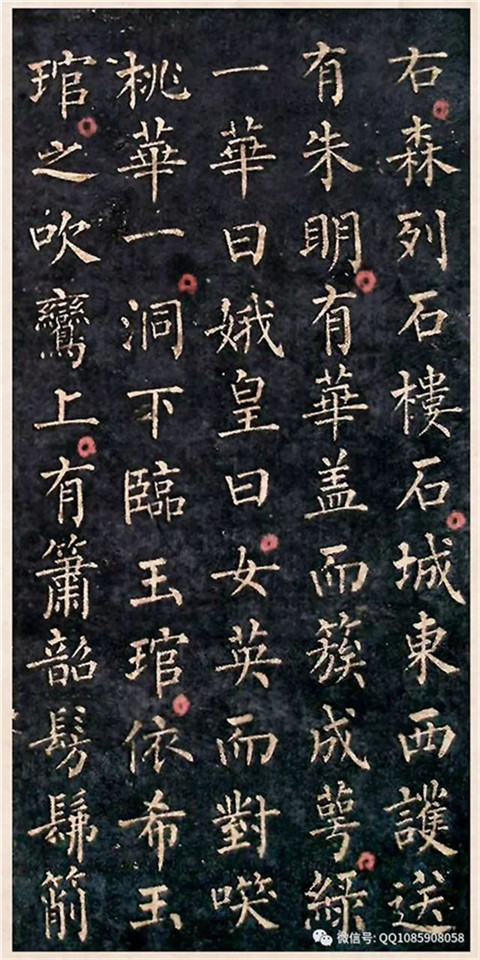 右森列石樓石城東西護送
有朱明有華盖而簇成萼綠
一華曰娥皇曰女英而對
桃華一洞下臨玉琯依希玉
琯之吹鸞上有簫韶髣髴箾
微信号: QQ1085908058